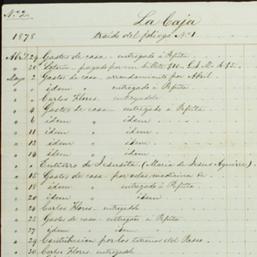 No. 2.
La Caja
1878 traido del fol. No. 1.
Abril 29 Gastos de casa. entregado á Pepita
" 30 pagado por
Mayo 2 Gastos de casa. arrendamiento por Abril.
" " idem " entregado á Pepita
" " Carlos Flores. entregadole
" 4 Gastos de casa. entregado á Pepita
" 6 idem " idem
" 11 idem " idem
" 12 idem " idem
" 14 idem " idem
" " Entierro de Tránsito (Maria de Jesus Aguirre)
" 15 Gastos de casa. por
" 18 idem " entregado á Pepita
" 20 idem " idem
" " Carlos Flores. entregado
" 25 Gastos de casa. entregado á Pepita
" 27 idem " idem
" 29 Contribucion por los terrenos del Paseo.
" 30 Carlos Flores. entregado